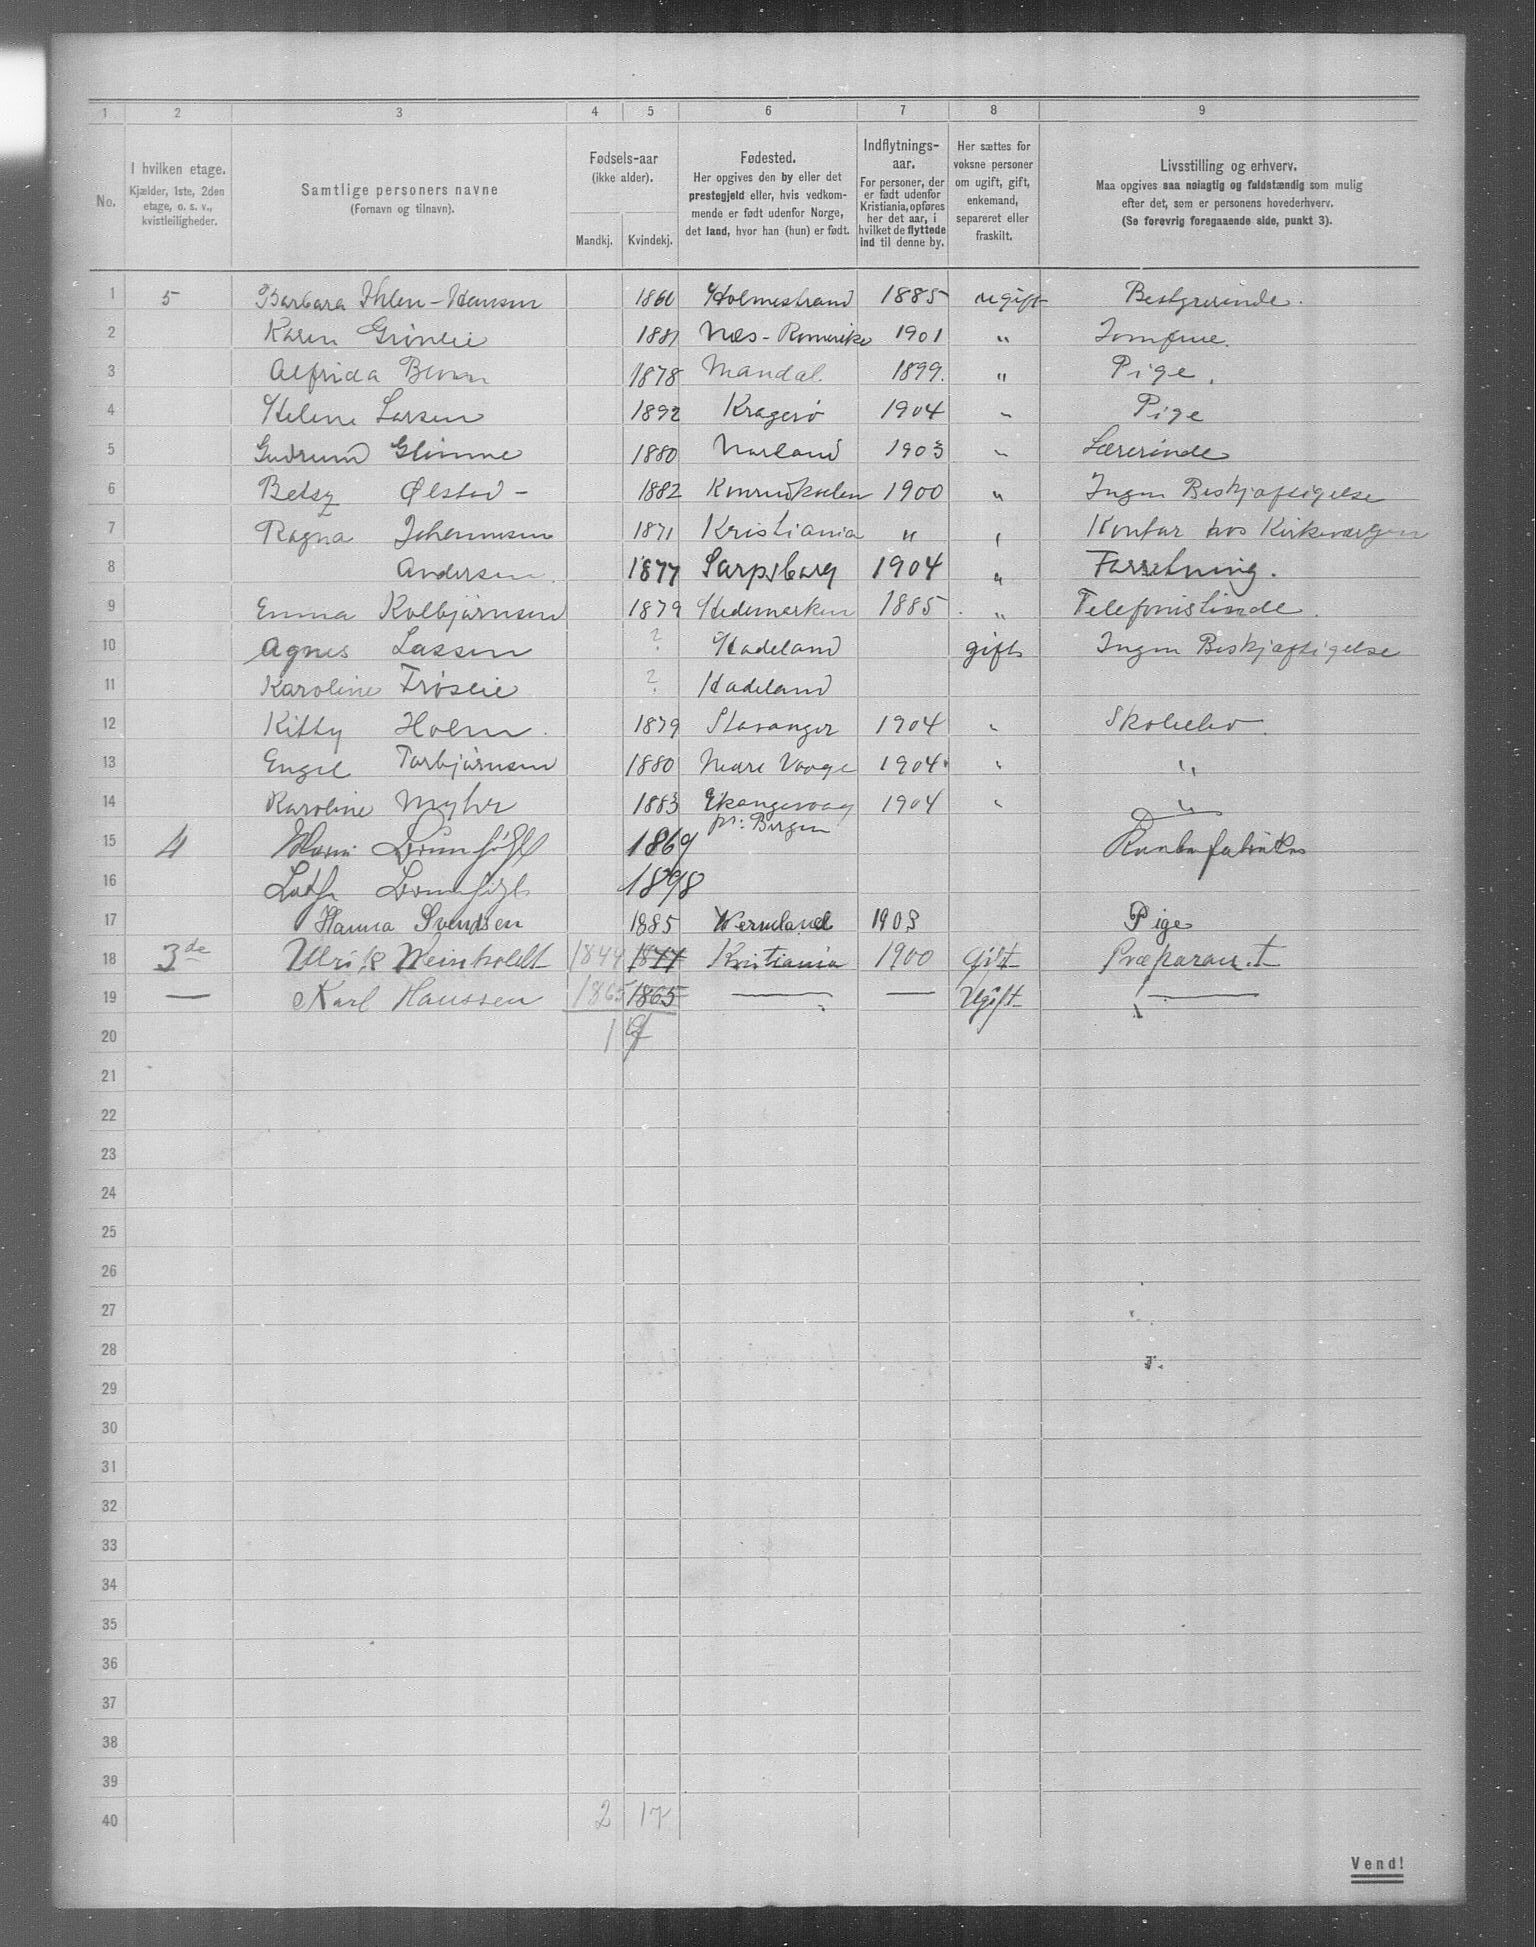 1 2 3 4 5 6 7 8 9
No.
I hvilken etage.
Kjælder, 1ste, 2den
etage, o. s. v.,
kvistleiligheder.
Samtlige personers navne
(Fornavn og tilnavn).
Fødsels-aar
(ikke alder).
Mandkj. Kvindekj.
Fødested.
Her opgives den by eller det
prestegjeld eller, hvis vedkom-
mende er født udenfor Norge,
det land, hvor han (hun) er født.
Indflytnings-
aar.
For personer, der
er født udenfor
Kristiania, opføres
her det aar, i
hvilket de flyttede
ind til denne by.
Her sættes for
voksne personer
om ugift, gift,
enkemand,
separeret eller
fraskilt.
Livsstilling og erhverv.
Maa opgives saa nøiagtig og fuldstændig som mulig
efter det, som er personens hovederhverv.
(Se forøvrig foregaaende side, punkt 3).
1 5 Barbara Ihlen-Hansen 1860 Holmestrand 1885 ugift Bestyrerinde.
2 Karen Grønlie 1881 Næs-Romerike 1901 " Jomfrue.
3 Alfrida 1878 Mandal. 1899. " Pige.
4 Helene Larsen 1892 Kragerø 1904 " Pige
5 Gudrun Glimme 1880 1903 " Lærerinde
6 Betsy Ølsted - 1882 1900 " Ingen Beskjæftigelse
7 Ragna Johannesen 1871 Kristiania " " Kontor hos Kirkevergen
8 Andersen. 1877 Sarpsborg 1904 " Forretning.
9 Emma Kolbjørnsen 1879 Hedemarken 1885. " Telefonistinde.
10 Agnes Lassen ? Hadeland gift Ingen Beskjæftigelse
11 Karoline Frøslie ? Hadeland
12 Kitty Holm. 1879 Stavanger 1904 " Skolelev.
13 Engel Torbjørnsen 1880 1904. " "
14 Karoline Myhr 1883 1904 " "
pr: Bergen
15 4 1869
16 1898
17 Hanna Svendsen 1885 Wermland 1903 Pige
18 3de Ulrik Weinholdt 1844 1844 Kristiania 1900 Gift Præparant
19 — Karl Hanssen 1865 1865 — — Ugift —
20
21
22
23
24
25
26
27
28
29
30
31
32
33
34
35
36
37
38
39
40 2 17
Vend!